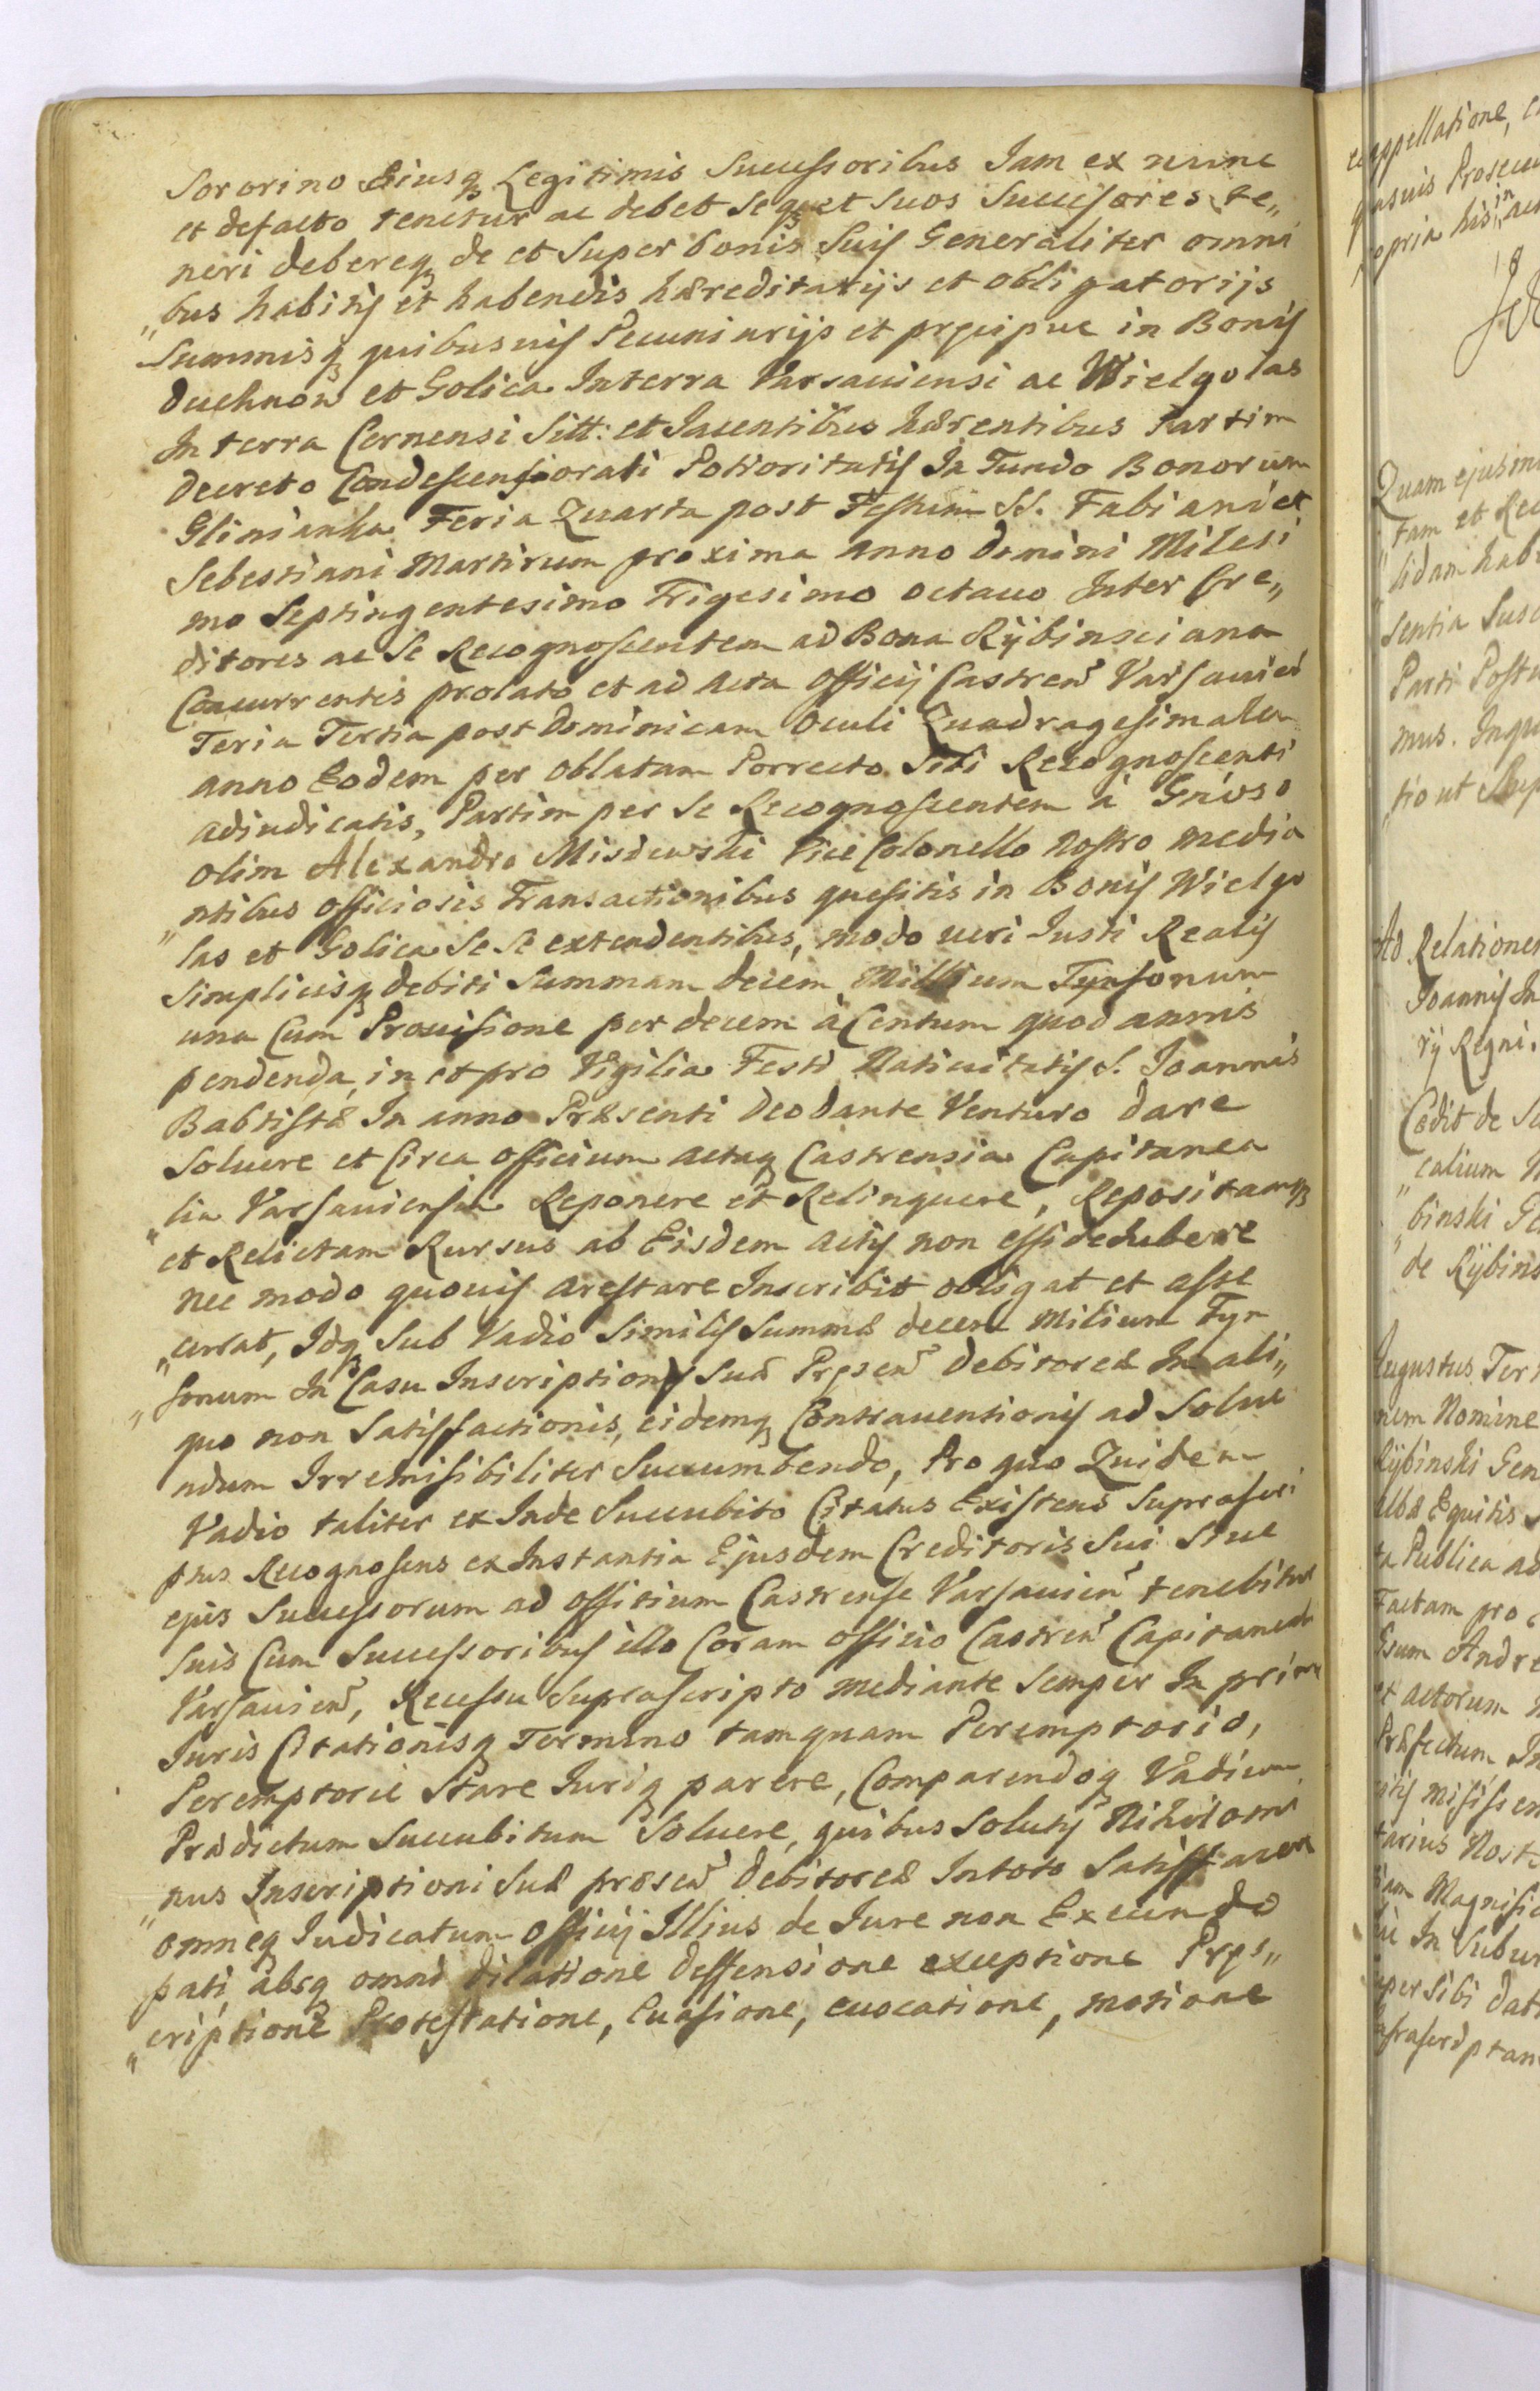 Sororino Eiusq₃ Legitimis Successoribus Iam ex nunc
et defacto tenetur ac debet Seq₃ et Suos Successores te„
neri debereq₃ de et Super bonis Suis Generaliter omni
„bus habitis et habendis hæreditarijs et obligatorijs
Summisq₃ quibusuis Pecuniarijs et pręcipue in Bonis
Duchnow et Golica In terra Varsauiensi ac Wielgolas
In terra Cernensi Sitt: et Iacentibus hærentibus Partim
Decreto Condescensorali Potioritatis In Fundo Bonorum
Glinianka Feria Quarta post Festum SS. Fabiani et
Sebestiani Martirum proxima anno Domini Milesi
mo Septingentesimo Trigesimo octauo Inter Cre„
ditores ac Se Recognoscentem ad Bona Rÿbinsciana
Concurrentes prolato et ad Acta Officij Castren Varsauien
Feria Tertia post Dominicam Oculi Quadragesimalem
anno Eodem per oblatam Porrecto Sibi Recognoscenti
adiudicatis, Partim per Se Recognoscentem à Gnoso
olim Alexandro Misdewski Vice Colonello Nostro media
„ntibus officiosis Transactionibus quesitis in Bonis Wielgo
las et Golica Se Se extendentibus, modo ueri Iusti Realis
Simplicisq₃ debiti Summam decem Millium Tynfonum
una Cum Prouisione per decem à Centum quod annis
pendenda, in et pro Vigilia Festi Natiuitatis S. Ioannis
Babtistæ In anno Præsenti Deo dante Venturo dare
Soluere et Circa officium actaq₃ Castrensia Capitanea
„lia Varsauiensia Reponere et Relinquere, Repositamq₃
et Relictam Rursus ab Eisdem actis non
nec modo quouis arestare Inscribit obligat et asse
„curat, Idq₃ Sub Vadio Similis Summæ decem Milium Tyn
„fonum In Casu Inscriptionis Suæ Pręsen debitoreæ In ali„
quo non Satisfactionis, eidemq₃ Contrauentionis ad Solue
ndum Irremisibiliter Succumbendo, Pro quo Quidem
Vadio taliter ex Inde Succubito Citatus Existens Suprascri
ptus Recognoscens ex Instantia Ejusdem Creditoris Sui Siue
ejus Successorum ad offitium Castrense Varsauien tenebitur
Suis Cum Successoribus illo Coram officio Castren Capitaneali
Varsauien, Recessu Suprascripto mediante Semper In primo
Iuris Citationisq₃ Termino tamquam Peremptorio,
Peremptorie Stare Iuriq₃ parere, Comparendoq₃ Vadium
Prædictum Succubitum Soluere, quibus Solutis Nihilomi
„nus Inscriptioni Suæ præsen debitoreæ In toto Satisfacere
omneq₃ Iudicatum officij Illius de Iure non Exeundo
pati, absq₃ omni dilatione deffensione exceptione Pręs„
„criptione Protestatione, Euasione, euocatione, motione
appellatione,
Quam ejusm
tam et Rec
lidam hab
sentia Susc
Parti Postu
mus. Inqu
tio ut
Ad Relationem
Ioannis In
rij Regni.
Cedit de Su
„calium
„binski Ge
de Rÿbins
Augustus Ter
nem Nomine
Rÿbinski Gen
Albæ Equitis
ta Publica ad
Factam pro
Gsum Andre
et actorum
Præfectum In
tarius Nost
Magnific
In Subur
per Sibi dat